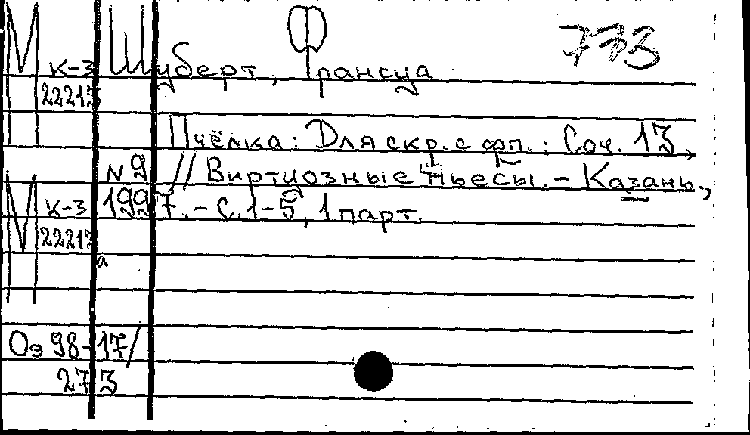 733
М к-3 Шуберт, Франсуа
22213
Пчёлка: Для скр. с фп.: Соч. 13,
N 9 // Виртуозные пьесы. - Казань,
М к-3 1997. - С. 1-5, 1 парт.
22213
а
Оэ 98-17/
273